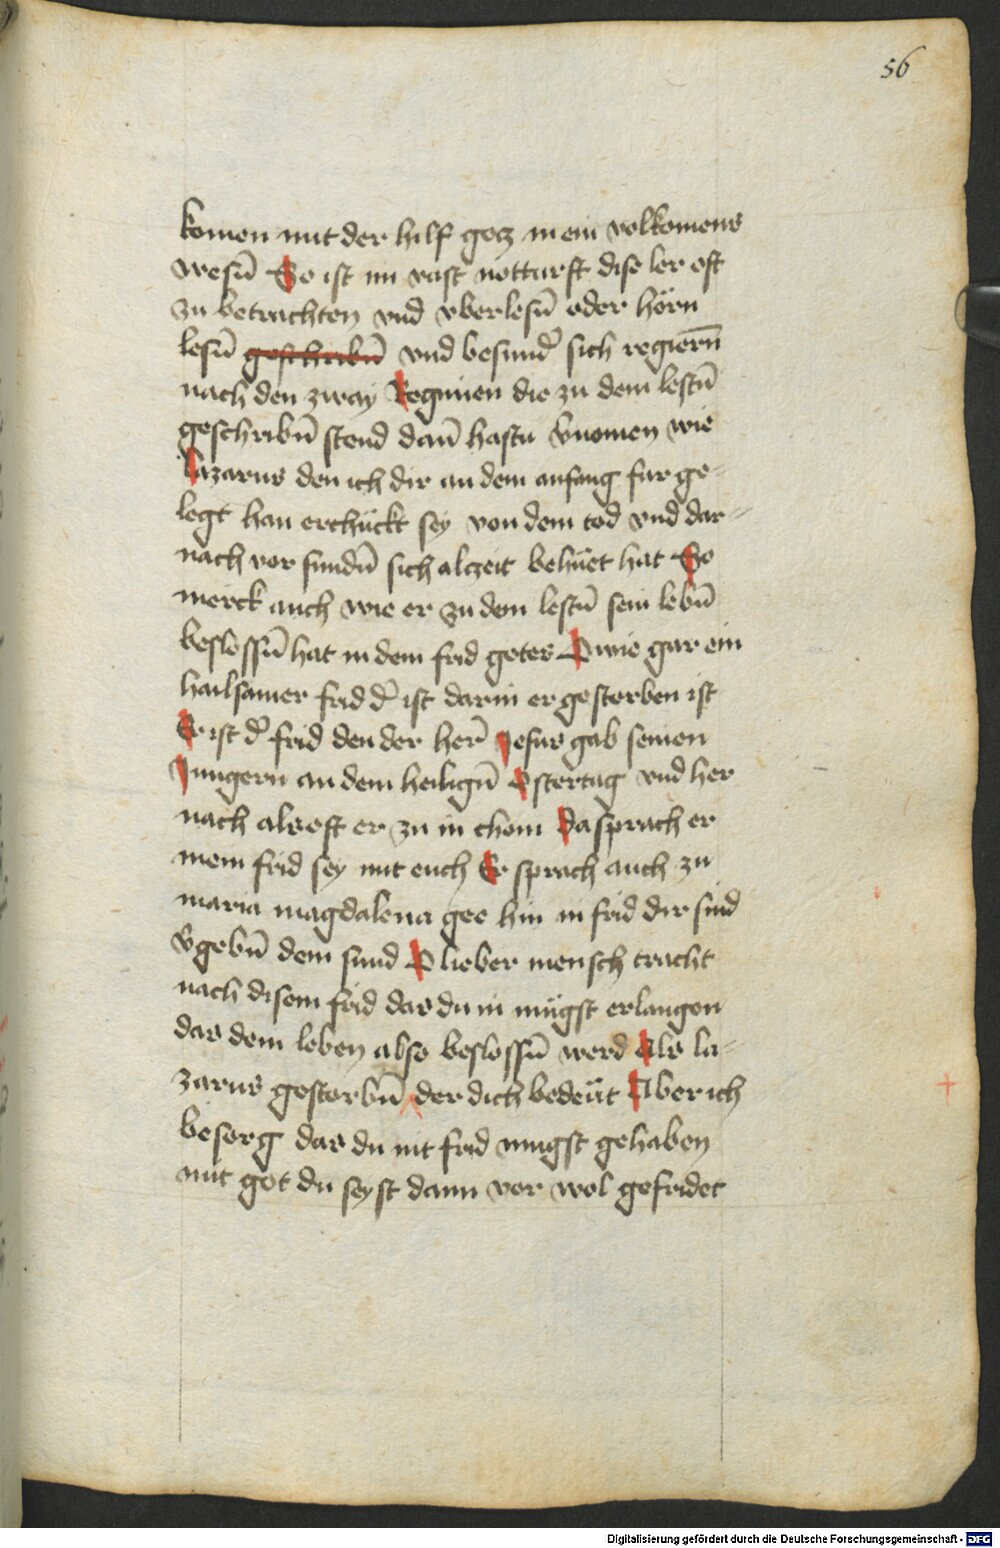 56
komen mit der hilf gotz in ein volkomens
wesu̅ So ist im vast notturft dise ler oft
zu betrachten vnd vberlesu̅ oder hörn
lesu̅ geschribu̅ vnd besund̉ sich regiern̅
nach den zway Regimen die zu dem lestu̅
geschribu̅ stend dan̅ hastu v̉nomen wie
lazarus den ich dir an dem anfang fur ge-
legt han erchückt sey von dem tod vnd dar-
nach vor sundu̅ sich alczeit behüet hat So
merck auch wie er zu dem lestu̅ sein lebu̅
beslossu̅ hat in dem frid gotes O wie gar ein
hailsamer frid d̉ ist darin er gestorben ist
Er ist d̉ frid den der her̅ Jesus gab seinen
Jungern an dem heiligu̅ Ostertag vnd her
nach als oft er zu in chom Da sprach er
mein frid sey mit euch Er sprach auch zu
maria magdalena gee hin in frid dir sind
v̉gebu̅ dein sund O lieber mensch tracht
nach disem frid das du in mügst erlangen
das dein leben also beslossu̅ werd Als la-
zarus gestorbu̅ der dich bedeüt Aber ich
besorg das du nit frid mugst gehaben
mit got du seyst dann vor wol gefridet
Digitalisierung gefördert durch die Deutsche Forschungsgemeinschaft - DFG